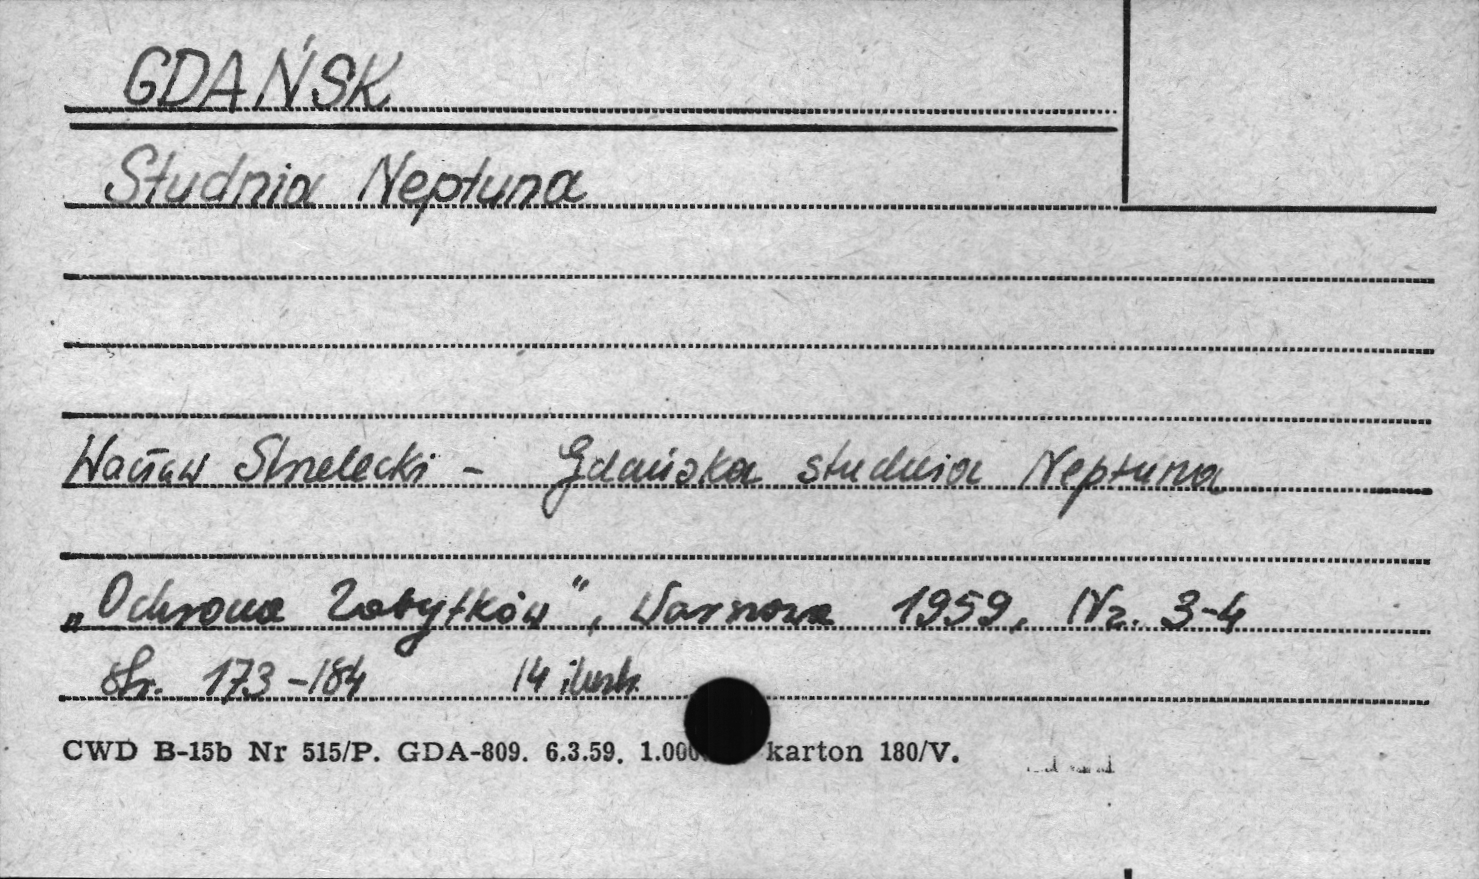 GDAŃSK
Studnia Neptuna
Wacław Strzelecki - Gdańska studnia Neptuna
„Ochrona Zabytków”, Warszawa 1959, Nr. 3-4
str. 173-184 14 ilustr.
CWD B-15b Nr 515/P. GDA-809. 6.3.59. 1.000 karton 180/V.